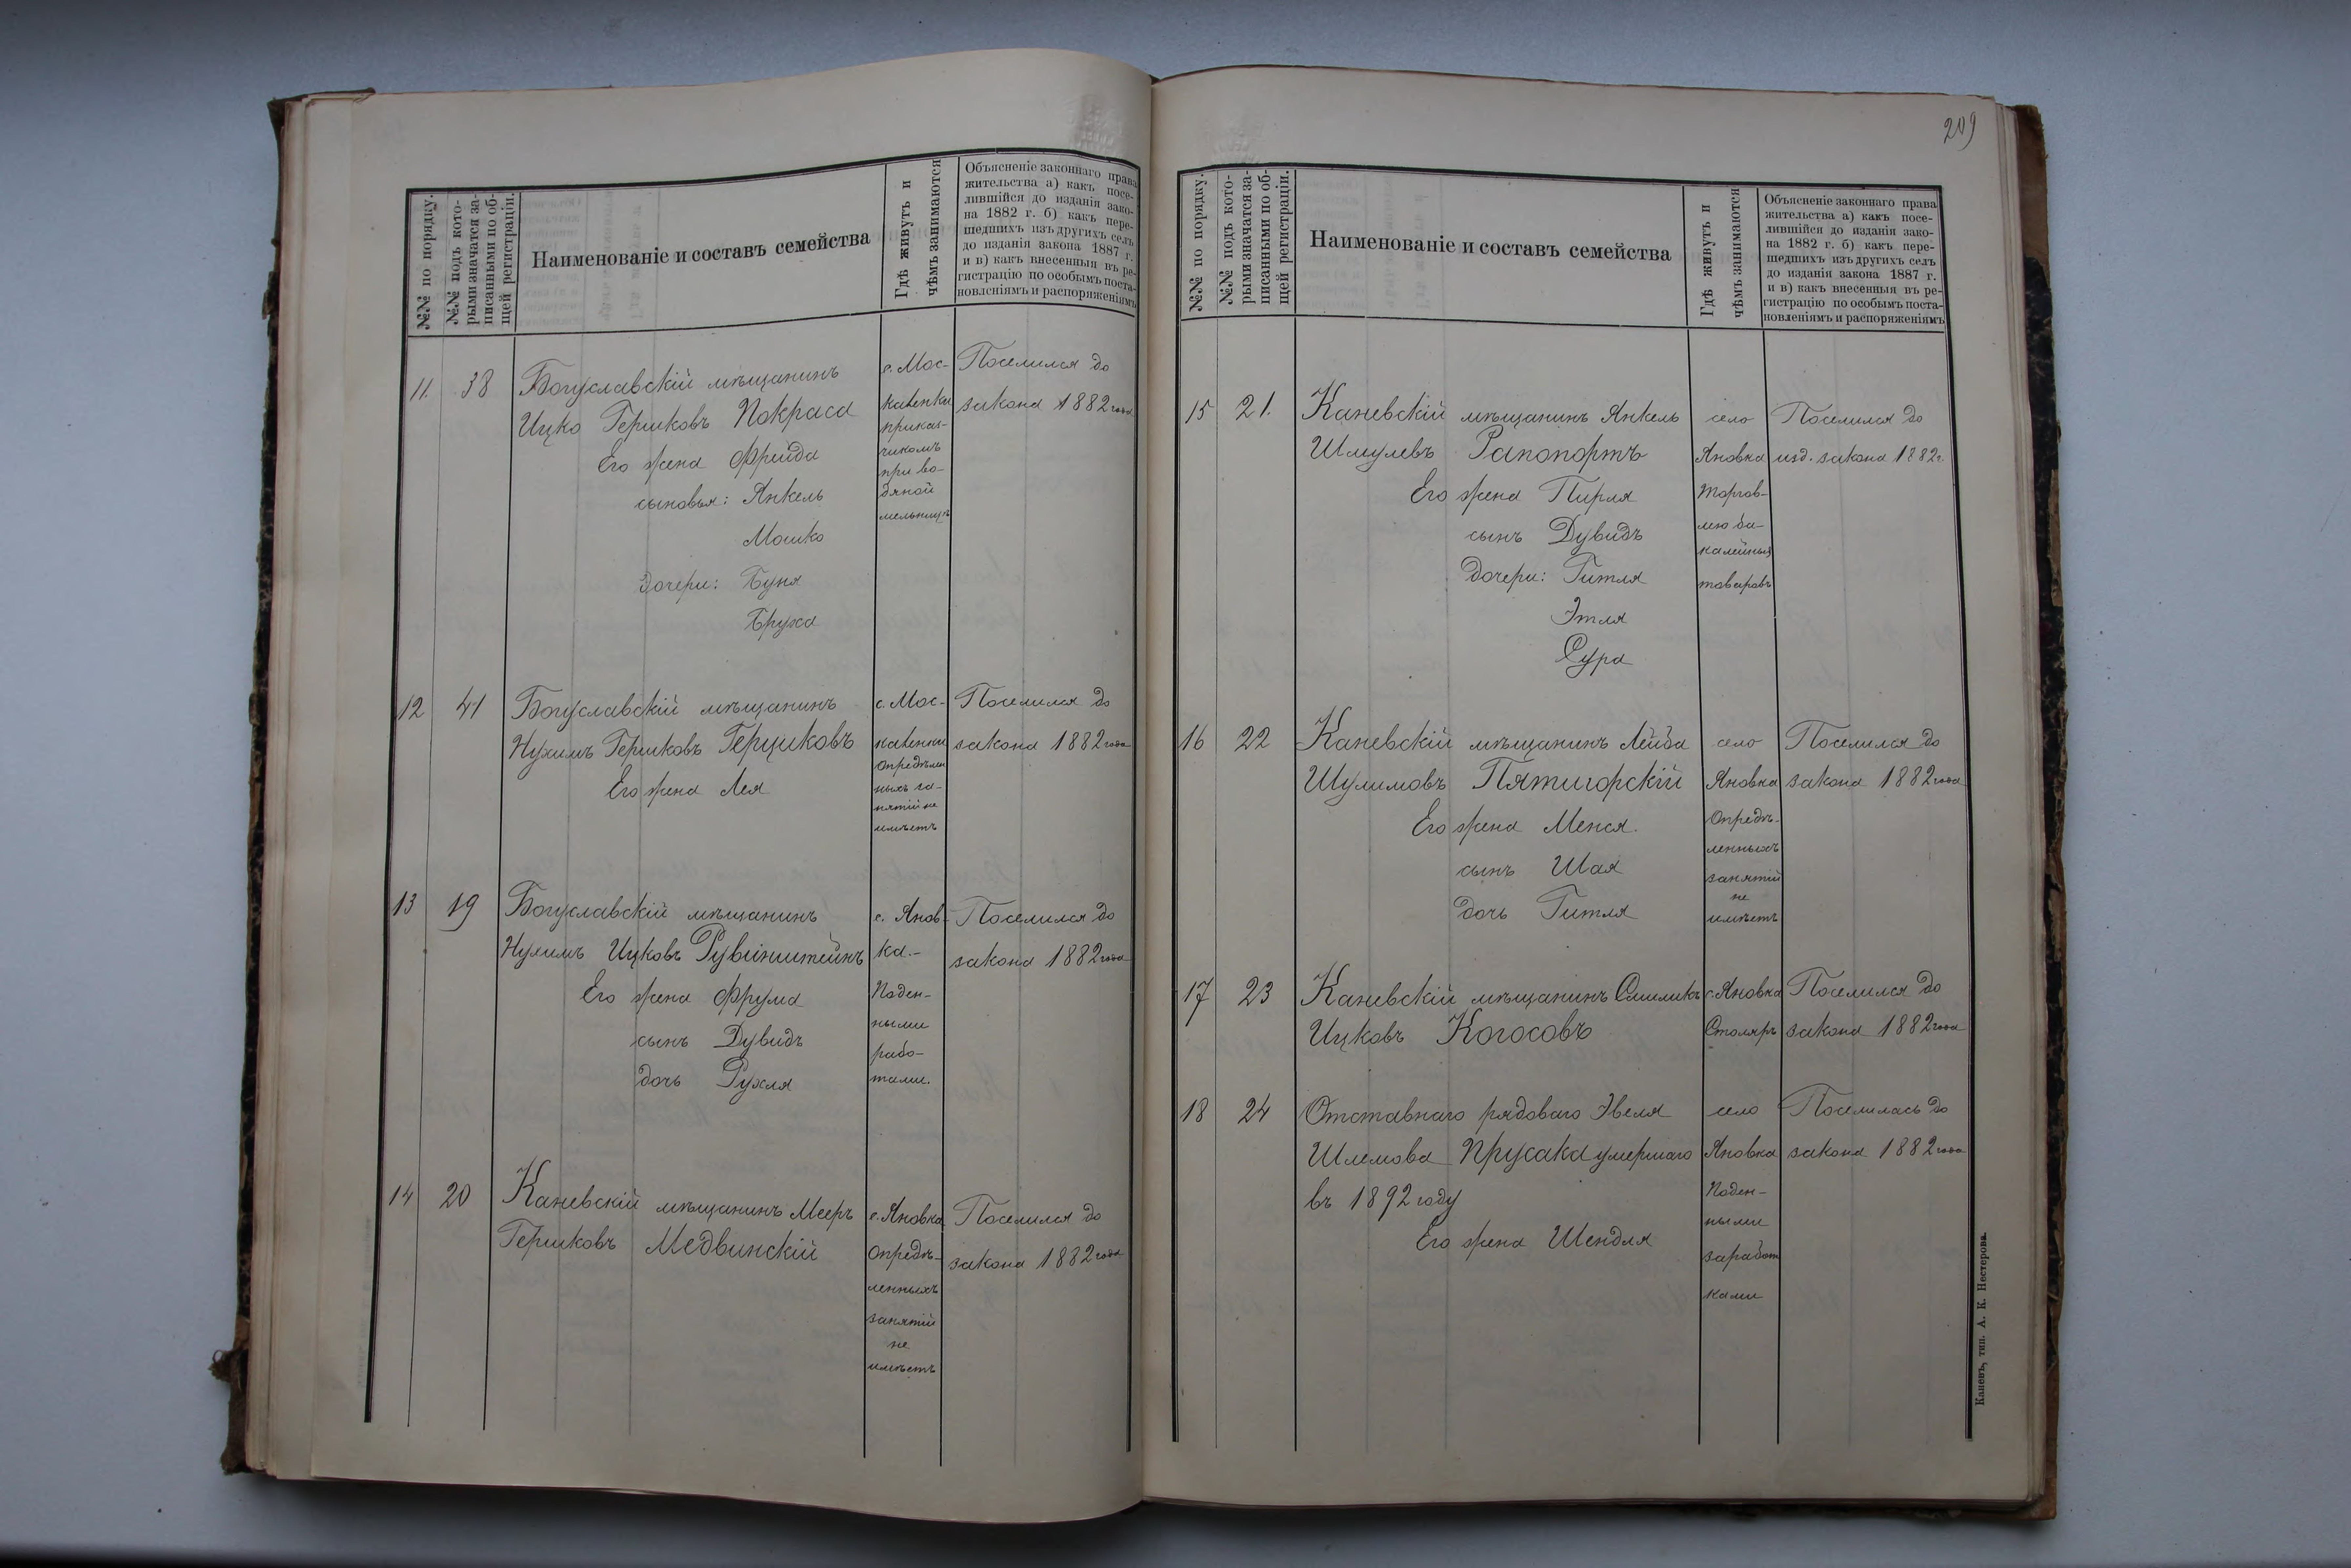 209
№№ по порядку.
№№ подъ кото-
рыми значатся за-
писанными по об-
щей регистраціи.
Наименованіе и составъ семейства
Гдѣ живутъ и
чѣмъ занимаются
Объясненіе законнаго права
жительства а) какъ посе-
лившійся до изданія зако-
на 1882 г. б) какъ пере-
шедшихъ изъ другихъ селъ
до изданія закона 1887 г.
и в) какъ внесенныя въ ре-
гистрацію по особымъ поста-
новленіямъ и распоряженіямъ
11. 38 Богуславскій мѣщанинъ
Ицко Гершковъ Покраса
Его жена Фрейда
сыновья: Янкель
Мошко
дочери: Буня
Бруха
с. Мос-
каленки
приказ-
чикомъ
при во-
дяной
мельницѣ
Поселился до
закона 1882 года
12 41 Богуславскій мѣщанинъ
Нухимъ Гершковъ Герциковъ
Его жена Лея
с. Мос-
каленки
Опредѣлен
ныхъ за-
нятій не
имѣетъ
Поселился до
закона 1882 года
13 19 Богуславскій мѣщанинъ
Нухимъ Ицковъ Рувинштейнъ
Его жена Фрума
сынъ Дувидъ
дочь Рухля
с. Янов-
ка.-
Поден-
ными
рабо-
тами.
Поселился до
закона 1882 года
14 20 Каневскій мѣщанинъ Мееръ
Гершковъ Медвинскій
с. Яновка
Опредѣ-
ленныхъ
занятій
не
имѣетъ
Поселился до
закона 1882 года
№№ по порядку.
№№ подъ кото-
рыми значатся за-
писанными по об-
щей регистраціи.
Наименованіе и составъ семейства
Гдѣ живутъ и
чѣмъ занимаются
Объясненіе законнаго права
жительства а) какъ посе-
лившійся до изданія зако-
на 1882 г. б) какъ пере-
шедшихъ изъ другихъ селъ
до изданія закона 1887 г.
и в) какъ внесенныя въ ре-
гистрацію по особымъ поста-
новленіямъ и распоряженіямъ
15 21. Каневскій мѣщанинъ Янкель
Шмулевъ Рапопортъ
Его жена Пирля
сынъ Дувидъ
дочери: Гитля
Этля
Сура
село
Яновка
Торгов-
лею ба-
калейныхъ
товаровъ
Поселился до
изд. закона 1882 г.
16 22 Каневскій мѣщанинъ Лейба
Шулимовъ Пятигорскій
Его жена Менся.
сынъ Шая
дочь Гитля
село
Яновка
Опредѣ-
ленныхъ
занятій
не
имѣетъ
Поселился до
закона 1882 года
17 23 Каневскій мѣщанинъ Смиликъ
Ицковъ Когосовъ
с. Яновка
Столяръ
Поселился до
закона 1882 года
18 24 Отставнаго рядоваго Эвеля
Шлемова Прусака умершаго
въ 1892 году
Его жена Шендля
село
Яновка
Поден-
ными
заработ
ками
Поселилась до
закона 1882 года
Каневъ, тип. А. К. Нестерова.